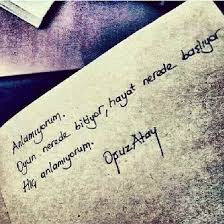 Anlamıyorum.
Oyun nerede bitiyor, hayat nerede başlıyor
Hiç anlamıyorum.
Oğuz Atay